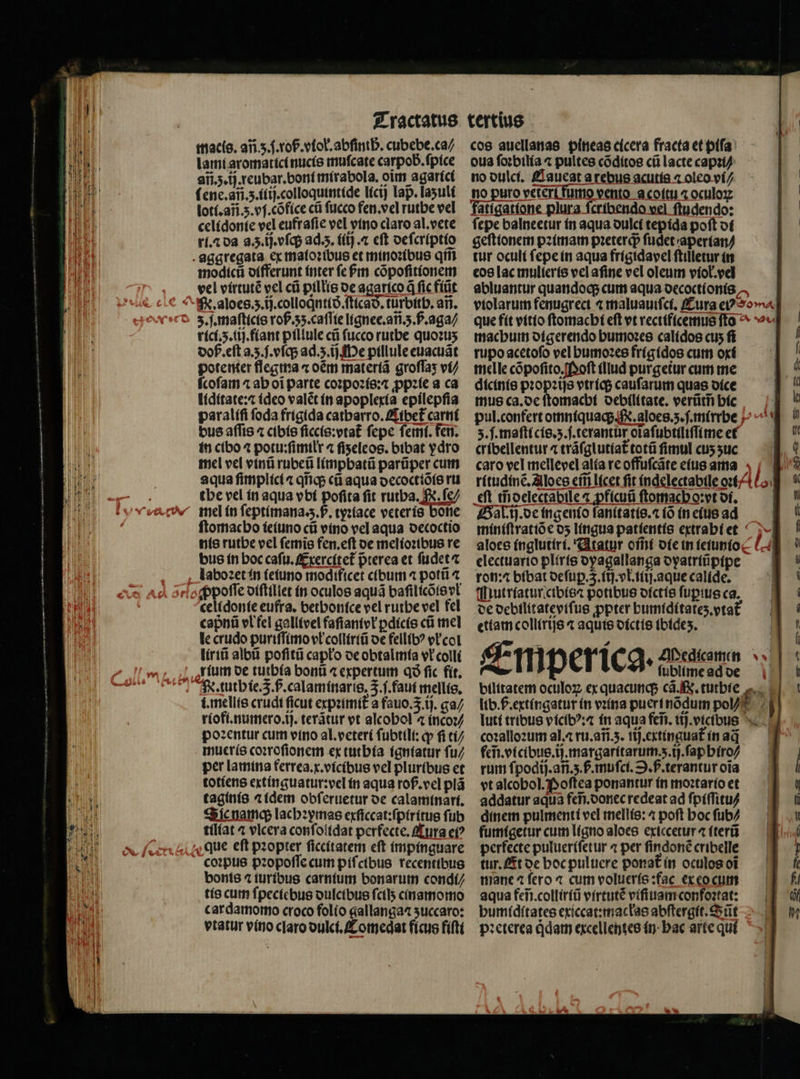 Tractatus tertius
macis. añ.ʒ.ſ.roẞ.viol̉.abſinth̉. cubebe.ca/
lami aromatici nucis muſcate carpob̉.ſpice
añ.ʒ.ij.reubar.boni mirabola. oim agarici
ſene.añ.ʒ.iiij.colloquintide licij lap̉. lazuli
loti.añ.ʒ.vj.cõfice cũ ſucco fen.vel ruthe vel
celidonie vel eufraſie vel vino claro al.vete
ri.⁊ da a.ʒ.ij.vſqꝫ ad.ʒ. iiij .⁊ eſt deſcriptio
aggregata ex maioꝛibus et minoꝛibus qm̃
modicũ differunt inter ſe ẞm cõpoſitionem
vel virtutẽ vel cũ pillis de agarico q̃ ſic fiũt
℞.aloes.ʒ.ij.colloqntiđ.ſticađ. turbith. añ.
ʒ.j.maſticis roẞ.ʒʒ.caſſie lignee.añ.ʒ.ẞ.aga/
rici.ʒ.iij.fiant pillule cũ ſucco ruthe quoꝛuʒ
doẞ.eſt a.ʒ.ſ.vſqꝫ ad.ʒ.ij.He pillule euacuãt
potenter flegma ⁊ oẽm materiã groſſaʒ vi/
ſcoſam ⁊ ab oi parte coꝛpoꝛis:⁊ ꝓpꝛie a ca
liditate:⁊ ideo valẽt in apoplexia epilepſia
paraliſi ſoda frigida catharro.Cibet̉ carni
bus aſſis ⁊ cibis ſiccis:vtat̉ ſepe ſemi. fen.
in cibo ⁊ potu:ſimilr̉ ⁊ ſiʒeleos. bibat ydro
mel vel vinũ rubeũ limphatũ parũper cum
aqua ſimplici ⁊ qñqꝫ cũ aqua decoctiõis ru
the vel in aqua vbi poſita ſit rutha. ℞.ſe/
mel in ſeptimana.ʒ.ẞ. tyꝛiace veteris bone
ſtomacho ieiuno cũ vino vel aqua decoctio
nis ruthe vel ſemis fen.eſt de melioꝛibus re
bus in hoc caſu.Exercitet̉ p̃terea et ſudet ⁊
laboꝛet in ieiuno modificet cibum ⁊ potũ ⁊
ꝓpoſſe diſtillet in oculos aquã baſiliƈõis vl̉
celidonie eufra. bethonice vel ruthe vel fel
capꝛnũ vl̉ fel gallivel faſianivl̉ ꝑdicis cũ mel
le crudo puriſſimo vl̉ collitiũ de fellibꝰ vl̉ col
liriũ albũ poſitũ capl̉o de obtalmia vl̉ colli
rium de tuthia bonũ ⁊ expertum qđ ſic fit.
℞.tuthie.℥.ẞ.calaminaris.℥.ſ.faui mellis.
i.mellis crudi ſicut expꝛimit̉ a fauo.℥.ij. ga/
rioſi.numero.ij. terãtur vt alcohol ⁊ incoꝛ/
poꝛentur cum vino al.veteri ſubtili: ꝙ ſi ti/
mueris coꝛroſionem ex tuthia igniatur ſu/
per lamina ferrea.x.vicibus vel pluribus et
totiens extinguatur:vel in aqua roẞ.vel plã
taginis ⁊ idem obſeruetur de calaminari.
Sic namqꝫ lachꝛymas exſiccat:ſpiritus ſub
tiliat ⁊ vlcera conſolidat perfecte.Cura eiꝰ
que eſt pꝛopter ſiccitatem eſt impinguare
coꝛpus pꝛopoſſe cum piſcibus recentibus
bonis ⁊ iuribus carnium bonarum condi/
tis cum ſpeciebus dulcibus ſcilʒ cinamomo
cardamomo croco folio gallanga⁊ ʒuccaro:
vtatur vino claro dulci.Comedat ficus fiſti
cos auellanas pineas cicera fracta et piſa
oua ſoꝛbilia ⁊ pultes cõditos cũ lacte capꝛi/
no dulci. Caueat a rebus acutis ⁊ oleo vi/
no puro veteri fumo vento a coitu ⁊ oculoꝝ
fatigatione plura ſcribendo vel ſtudendo:
ſepe balneetur in aqua dulci tepida poſt di
geſtionem pꝛimam pꝛeterqꝫ ſudet ⁊aperian/
tur oculi ſepe in aqua frigidavel ſtilletur in
eos lac mulieris vel aſine vel oleum viol̉.vel
abluantur quandoqꝫ cum aqua decoctionis
violarum fenugreci ⁊ maluauiſci. Cura eiꝰ
que fit vitio ſtomachi eſt vt rectificemus ſto
machum digerendo humoꝛes calidos cuʒ ſi
rupo acetoſo vel humoꝛes frigidos cum oxi
melle cõpoſito.Poſt illud purgetur cum me
dicinis pꝛopꝛijs vtriqꝫ cauſarum quas dice
mus ca.de ſtomachi debilitate. verũtm̃ hic
pul.confert omniquaqꝫ.℞.aloes.ʒ.ſ.mirrhe
ʒ.ſ.maſticis.ʒ.ſ.terantur oiaſubtiliſſime et
cribellentur ⁊ trãſglutiat̉ totũ ſimul cuʒ ʒuc
caro vel mellevel alia re offuſcãte eius ama
ritudinẽ.Aloes em̃ licet ſit indelectabile oꝛi
eſt tm̃ delectabile ⁊ ꝓficuũ ſtomacho:vt di.
Gal.ij.de ingenio ſanitatis.⁊ iõ in eius ad
miniſtratiõe dʒ lingua patientis extrahi et
aloes inglutiri. Utatur oñi die in ieiunio
electuario pliris dyagallanga dyatriũpipe
ron:⁊ bibat deſuꝑ.℥.iij.vl̉.iiij.aque calide.
Nutriatur cibis⁊ potibus dictis ſupius ca.
de debilitateviſus ꝓpter humiditateʒ.vtat̉
etiam collirijs ⁊ aquis dictis ibideʒ.
Emperica. Medicamen
ſublime ad de
bilitatem oculoꝝ ex quacunqꝫ cã.℞. tuthie
lib.ẞ.extingatur in vꝛina pueri nõdum pol/
luti tribus vicibꝰ:⁊ in aqua fen̄. iij.vicibus
coꝛalloꝛum al.⁊ ru.añ.ʒ. iij.extinguat̉ in aq̃
fen̄.vicibus.ij.margaritarum.ʒ.ij.ſapbiro/
rum ſpodij.añ.ʒ.ẞ.muſci.℈.ẞ.terantur oia
vt alcohol.Poſtea ponantur in moꝛtario et
addatur aqua fen̄.donec redeat ad ſpiſſitu/
dinem pulmenti vel mellis: ⁊ poſt hoc ſub/
fumigetur cum ligno aloes exiccetur ⁊ iterũ
perfecte puluerifetur ⁊ per ſindonẽ cribelle
tur.Et de hoc puluere ponat̉ in oculos oi
mane ⁊ ſero ⁊ cum volueris :fac ex eo cum
aqua fen̄.colliriũ virtutẽ viſiuam confoꝛtat:
humiditates exiccat:macl̉as abſtergit.Sũt
pꝛeterea q̃dam excellentes in hac arte qui